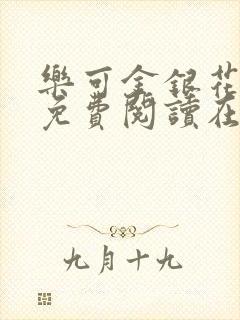 樂可金銀花
免費閱讀在
九月十九